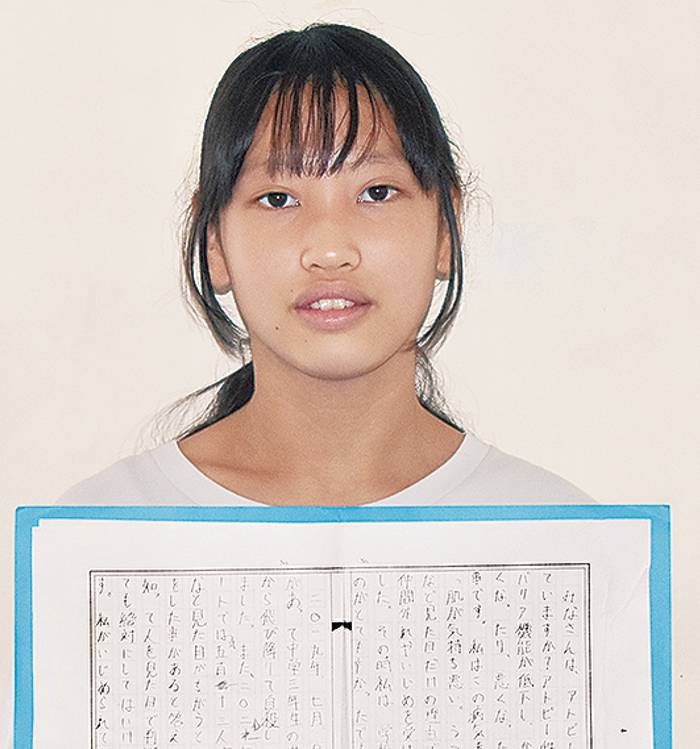 みなさんは、アトピ
ていますか？アトピー性
バリア機能が低下し、
くな　たり、悪くな　た
患です。私はこの病気
「肌が気持ち悪い。う
など見た目だけの理由
仲間外れやいじめを受
した。その時私は、学
二〇一九年　七月
があ　て中学三年生の
から飛び降りて自殺し
ました。また、二〇二
ートでは五百　十三人
なと見た目がちがうと
をした事があると答え
知　て人を見た目で
ても絶対にしてはいけ
す。私がいじめられて